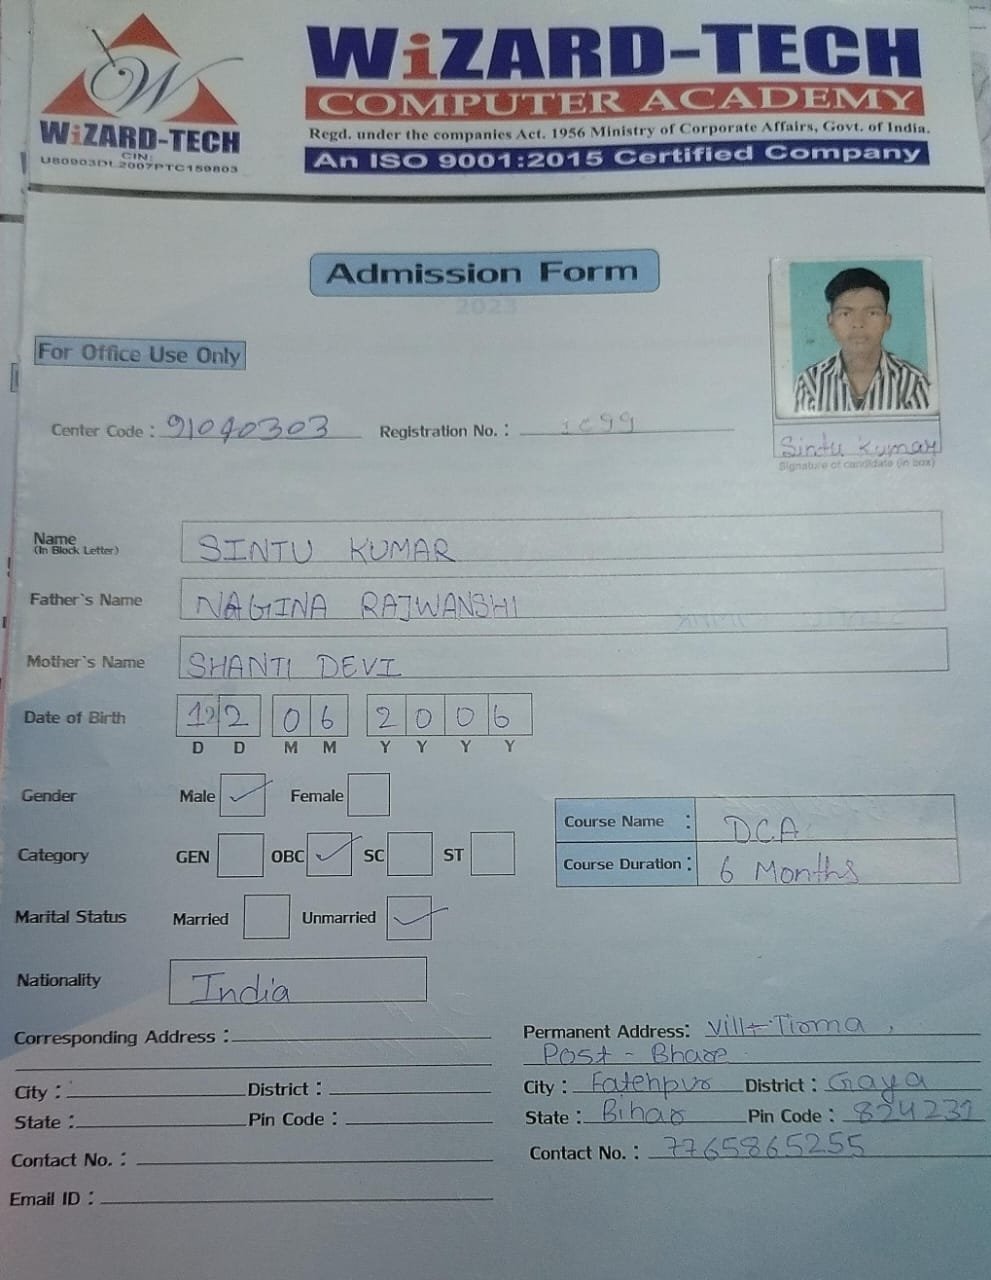 WiZARD-TECH
COMPUTER ACADEMY
Regd. under the companies Act. 1956 Ministry of Corporate Affairs, Govt. of India.
An ISO 9001:2015 Certified Company
W
WiZARD-TECH
CIN:
U80903DL2007PTC159803
Admission Form
2023
For Office Use Only
Center Code : 91040303 Registration No. :
Sintu Kumar
Signature of candidate (in box)
Name SINTU KUMAR
(In Block Letter)
Father`s Name NAGINA RAJWANSHI
Mother`s Name SHANTI DEVI
Date of Birth 12 06 2006
D D M M Y Y Y Y
Gender Male Female
Course Name : DCA
Category GEN OBC SC ST
Course Duration : 6 Months
Marital Status Married Unmarried
Nationality India
Corresponding Address : Permanent Address: Vill- Tioma ,
Post - Bhare
City : District : City : Fatehpur District : Gaya
State : Pin Code : State : Bihar Pin Code : 824231
Contact No. : Contact No. : 7765865255
Email ID :